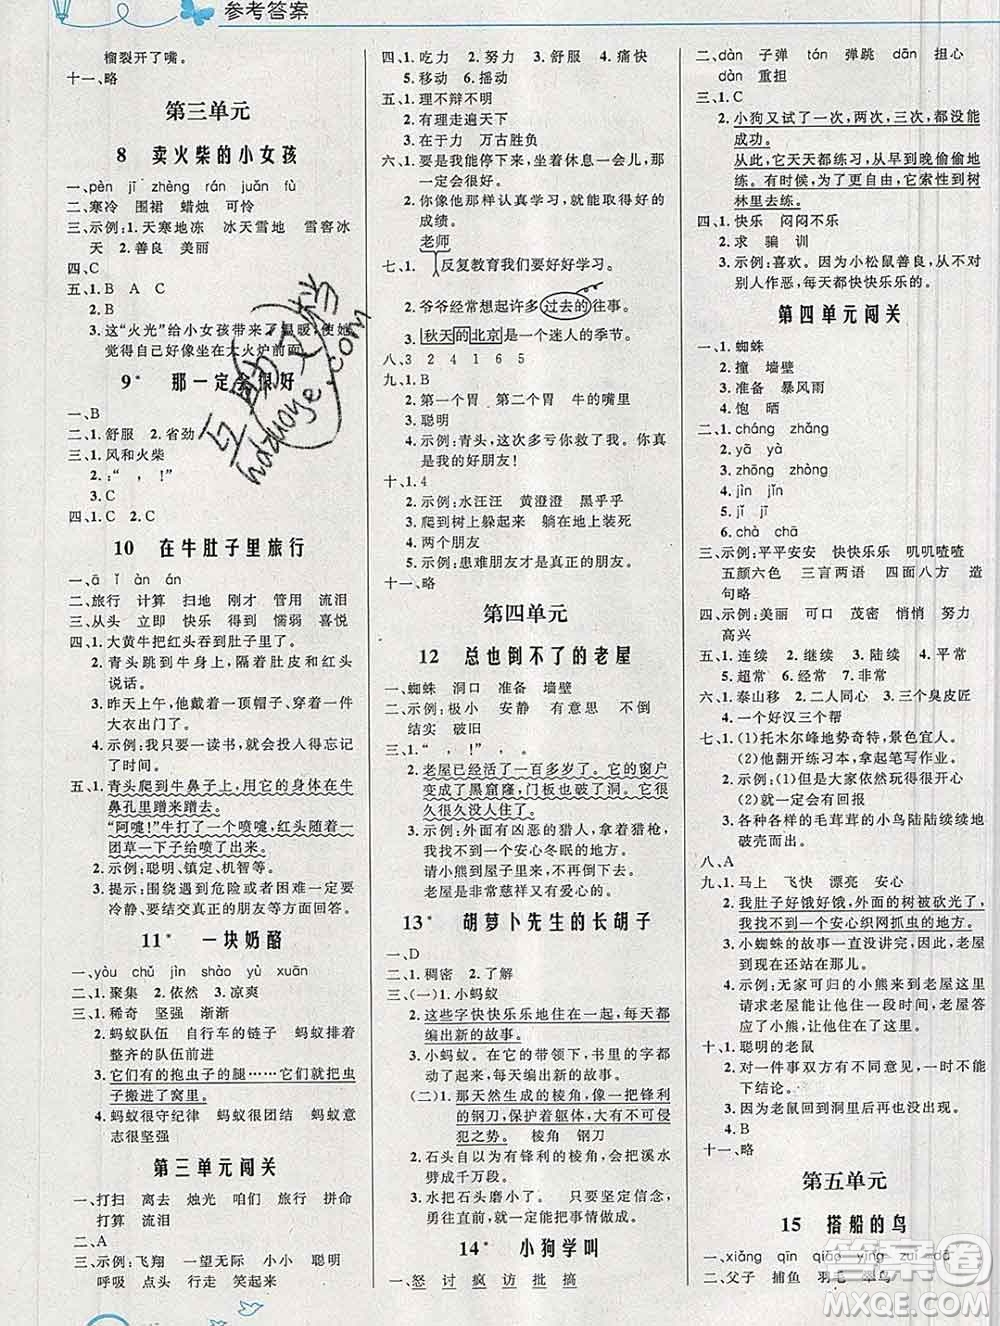 参考答案
榴裂开了嘴。
十一、略
第三单元
8 卖火柴的小女孩
一、pèn jī zhèng rán juǎn fù
二、寒冷 围裙 蜡烛 可怜
三、示例:1.天寒地冻 冰天雪地 雪窖冰
天 2.善良 美丽
四、C
五、1.B A C
2.B
3.这“火光”给小女孩带来了温暖,使她
觉得自己好像坐在大火炉前面
9* 那一定会很好
一、B
二、1.舒服 2.省劲
三、1.风和火柴
2.:“ , !”
3.C
四、1.C 2.C
10 在牛肚子里旅行
一、ā ǐ àn án
二、旅行 计算 扫地 刚才 管用 流泪
三、从头 立即 快乐 得到 懦弱 喜悦
四、1.大黄牛把红头吞到肚子里了。
2.青头跳到牛身上,隔着肚皮和红头
说话。
3.昨天上午,他戴着一顶帽子、穿着一件
大衣出门了。
4.示例:我只要一读书,就会忘记
了时间。
五、1.青头爬到牛鼻子上,用它的身体在牛
鼻孔里蹭来蹭去。
“阿嚏!”牛打了一个喷嚏,红头随着一
团草一下子给喷了出来。
2.示例:聪明、镇定、机智等。
3.提示:围绕遇到危险或者困难一定要
冷静、要结交真正的朋友等方面回答。
11* 一块奶酪
一、yòu chǔ jìn shào yù xuān
二、1.聚集 2.依然 3.凉爽
三、1.稀奇 坚强 渐渐
2.蚂蚁队伍 自行车的链子 蚂蚁排着
整齐的队伍前进
3.它们有的抱虫子的腿……它们就把虫
子搬进了窝里。
4.蚂蚁很守纪律 蚂蚁很团结 蚂蚁意
志很坚强
第三单元闯关
一、打扫 离去 烛光 咱们 旅行 拼命
打算 流泪
二、A
三、示例:飞翔 一望无际 小小 聪明
呼吸 点头 行走 笑起来
四、1.吃力 2.努力 3.舒服 4.痛快
5.移动 6.摇动
五、1.理不辩不明
2.有理走遍天下
3.在于力 万古胜负
六、1.要是我能停下来,坐着休息一会儿,那
一定会很好。
2.你像他那样认真学习,就能取得好的
成绩。
老师
七、1. 反复教育我们要好好学习。
2.爷爷经常想起许多过去的往事。
3.秋天的北京是一个迷人的季节。
八、3 2 4 1 6 5
九、1.B
2.第一个胃 第二个胃 牛的嘴里
3.聪明
4.示例:青头,这次多亏你救了我。你真
是我的好朋友!
十、1.4
2.示例:水汪汪 黄澄澄 黑乎乎
3.爬到树上躲起来 躺在地上装死
4.两个朋友
5.示例:患难朋友才是真正的朋友。
十一、略
第四单元
12 总也倒不了的老屋
一、蜘蛛 洞口 准备 墙壁
二、示例:极小 安静 有意思 不倒
结实 破旧
三、1.“ , !”
2.老屋已经活了一百多岁了。它的窗户
变成了黑窟窿,门板也破了洞。它很
久很久没人住了。
3.示例:外面有凶恶的猎人,拿着猎枪,
我找不到一个安心冬眠的地方。
请小熊到屋子里来,一直没有倒下。
老屋是非常慈祥又有爱心的。
13* 胡萝卜先生的长胡子
一、D
二、1.稠密 2.了解
三、(一)1.小蚂蚁
2.这些字快快乐乐地住在一起,每天都
编出新的故事。
3.小蚂蚁。在它的带领下,书里的字都
动了起来,每天编出新的故事。
(二)1.那天然生成的棱角,像一把锋利
的钢刀,保护着躯体,大有不可侵
犯之势。 棱角 钢刀
2.石头自以为有锋利的棱角,可将溪水
劈成千万段。
3.水把石头磨小了。 只要坚定信念,
勇往直前,就一定能把事情做成。
14* 小狗学叫
一、怒 讨 疯 访 批 搞
二、dàn 子弹 tán 弹跳 dān 担心
dàn 重担
三、1.C
2.小狗又试了一次,两次,三次,都没能
成功。
从此,它天天都练习,从早到晚偷偷地
练。为了有时间练习,它索性到树
林里去练。
四、1.快乐 闷闷不乐
2.求 骗 训
3.示例:喜欢。因为小松鼠善良,不计较
别人恶作,每天都快快乐乐的。
第四单元闯关
一、1.蜘蛛
2.撞 墙壁
3.准备 暴风雨
4.饱 晒
二、1.cháng zhǎng
2.yā yà
3.zhōng zhòng
4.jìn jìn
5.chà chā
三、示例:平平安安 快快乐乐 叽叽喳喳
五颜六色 三言两语 四面八方 造
句略
四、示例:美丽 可口 茂密 悄悄 努力
高兴
五、1.连续 2.继续 3.陆续 4.平常
5.超常 6.经常 7.非常
六、1.泰山移 2.二人同心 3.三个臭皮匠
4.一个好汉三个帮
七、1.(1)托木尔峰地势奇特,景色优美。
(2)他翻开练习本,拿起笔写作业。
2.示例:(1)但是大家依然玩得很开心
(2)就一定会有回报
3.各种各样的毛茸茸的小鸟陆陆续续地
破壳而出。
八、A
九、1.马上 飞快 漂亮 安心
2.我肚子好饿好饿,外面的树被砍光了,
我找不到一个安心织网抓虫的地方。
3.小蜘蛛的故事一直没讲完,老屋到
现在还站在那儿。
4.示例:无家可归的小熊来到老屋里
请求老屋让他们住一段时间,老屋答
应了小熊,让他们住了进来。
十、1.聪明的老鼠
2.对一件事双方有不同意见,一时不能
下结论。
3.因为老鼠回到洞里后再也没出现。
4.B
十一、略
第五单元
15 搭船的鸟
一、xiǎng qīn qiāo yīng zuǐ dā
二、父子 捕鱼 羽毛 翠鸟
互助文档
hdzuoye.com
答案圈
MXQE.COM